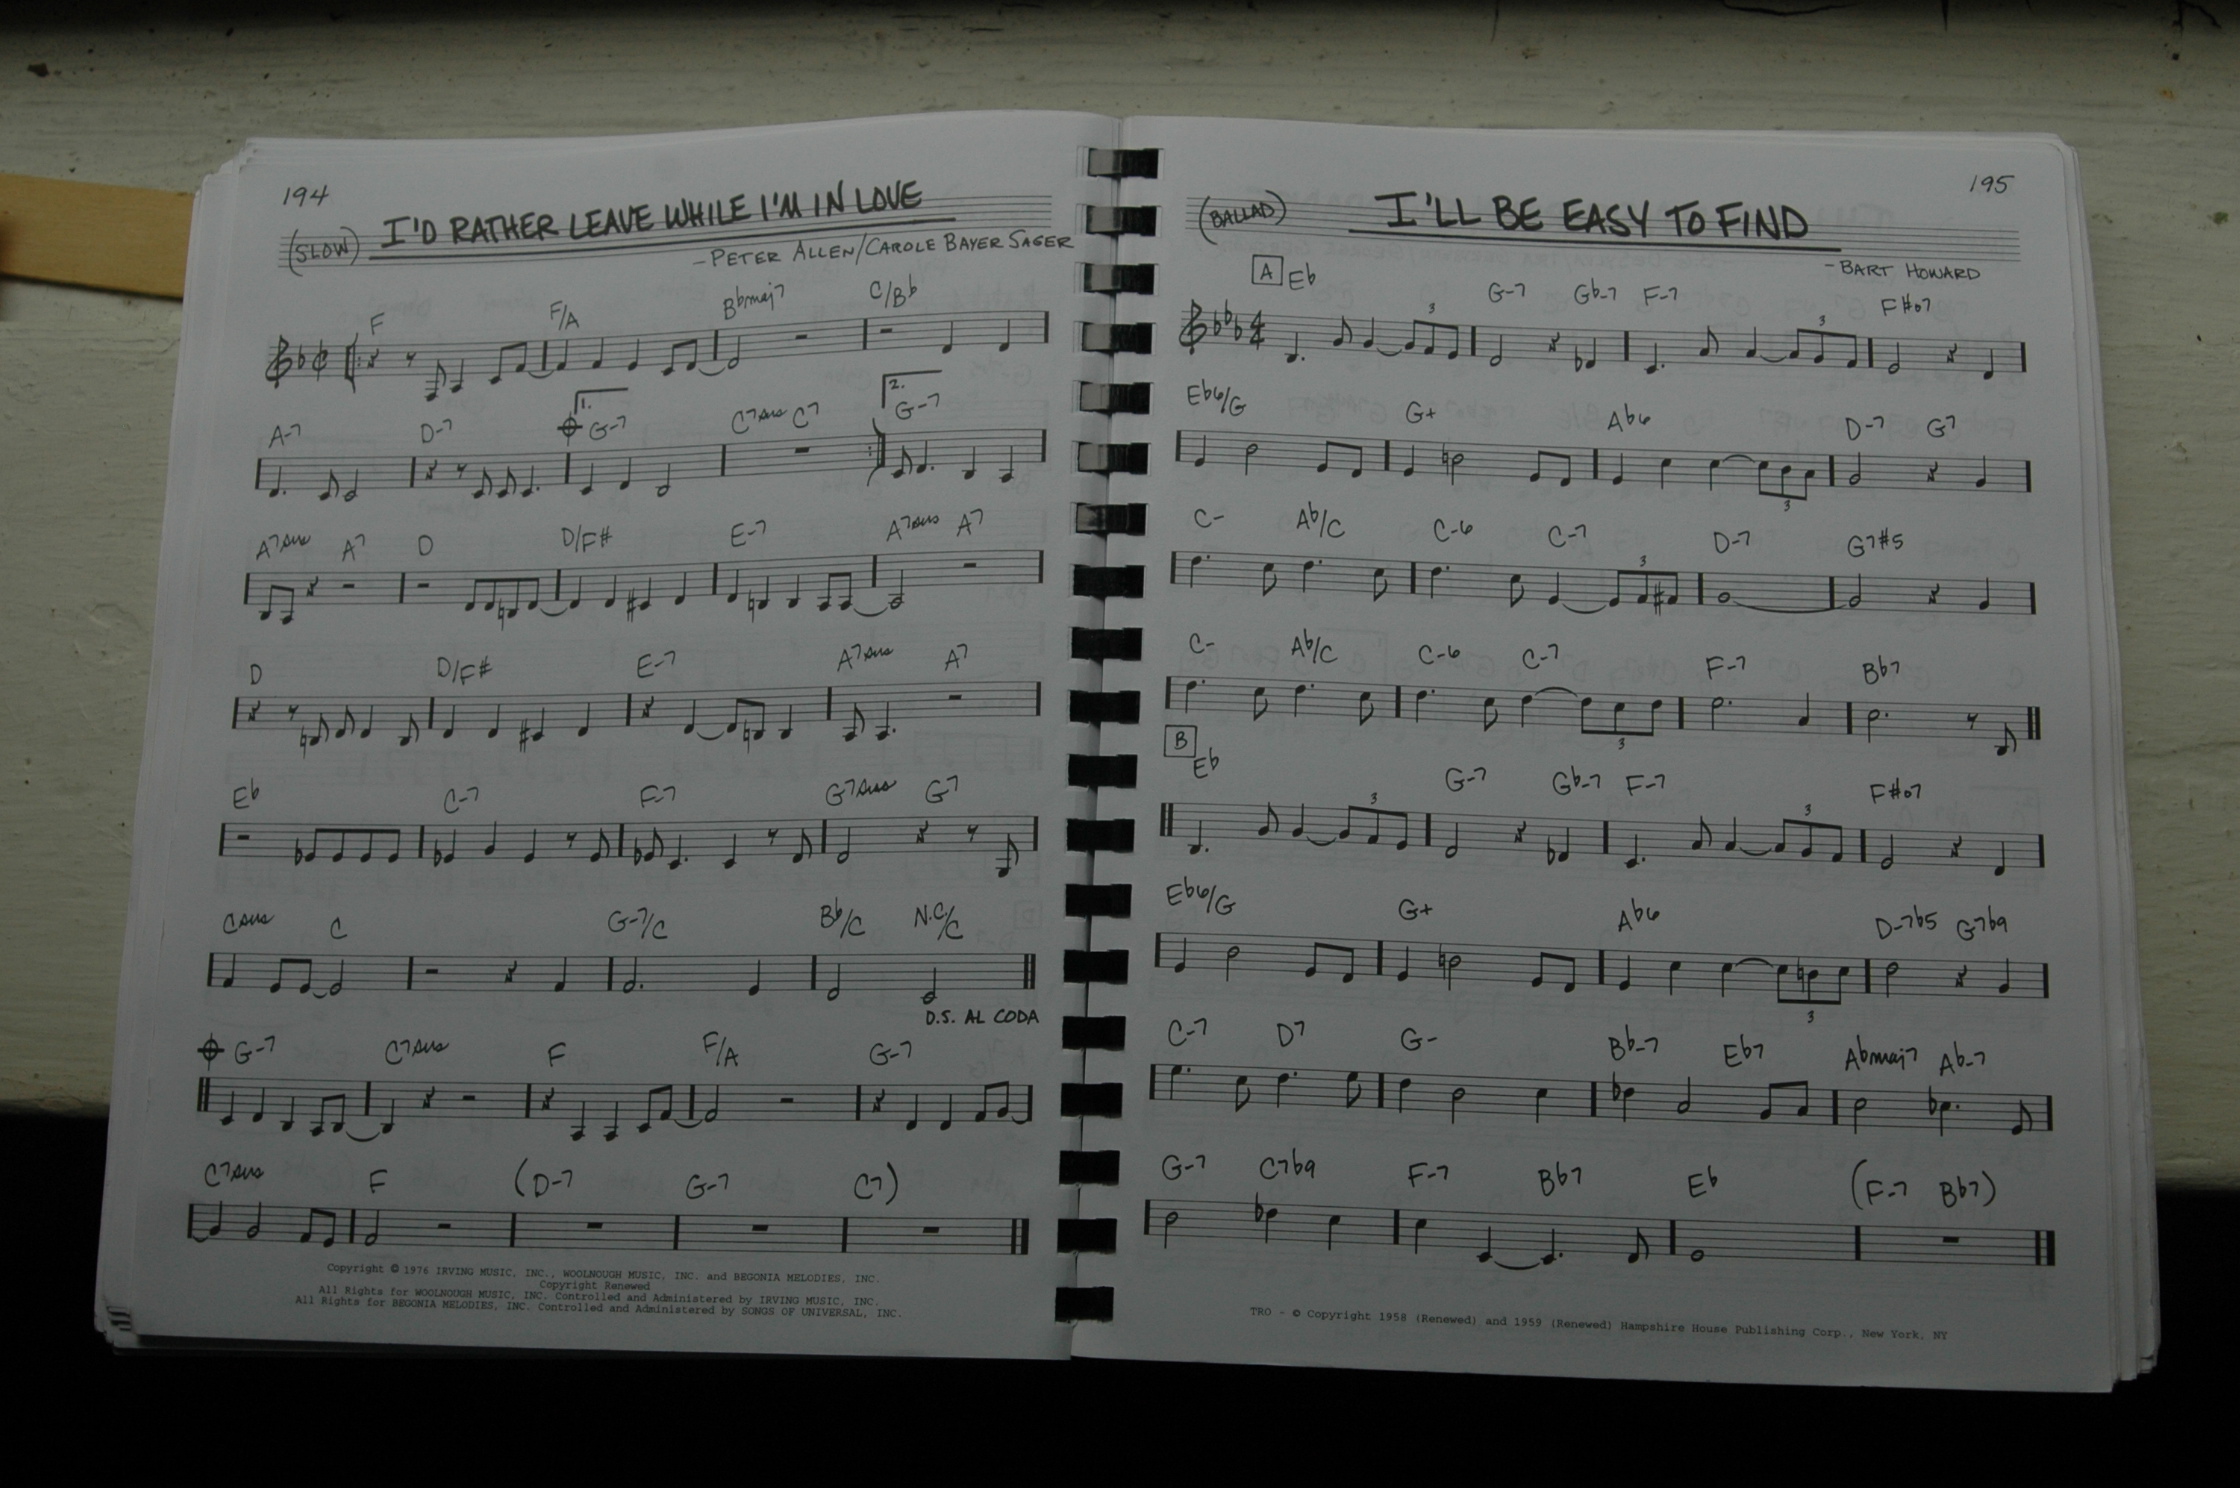 194
(SLOW) I'D RATHER LEAVE WHILE I'M IN LOVE
- PETER ALLEN/CAROLE BAYER SAGER
F F/A Bbmaj7 C/Bb
A-7 D-7 1. G-7 C7sus C7 2. G-7
A7sus A7 D D/F# E-7 A7sus A7
D D/F# E-7 A7sus A7
Eb C-7 F-7 G7sus G7
Csus C G-7/C Bb/C N.C./C
D.S. AL CODA
G-7 C7sus F F/A G-7
C7sus F (D-7 G-7 C7)
Copyright © 1976 IRVING MUSIC, INC., WOOLNOUGH MUSIC, INC. and BEGONIA MELODIES, INC.
Copyright Renewed
All Rights for WOOLNOUGH MUSIC, INC. Controlled and Administered by IRVING MUSIC, INC.
All Rights for BEGONIA MELODIES, INC. Controlled and Administered by SONGS OF UNIVERSAL, INC.
195
(BALLAD) I'LL BE EASY TO FIND
- BART HOWARD
A Eb G-7 Gb-7 F-7 F#o7
3 3
Eb6/G G+ Ab6 D-7 G7
3
C- Ab/C C-6 C-7 D-7 G7#5
3
C- Ab/C C-6 C-7 F-7 Bb7
3
B Eb G-7 Gb-7 F-7 F#o7
3 3
Eb6/G G+ Ab6 D-7b5 G7b9
3
C-7 D7 G- Bb-7 Eb7 Abmaj7 Ab-7
G-7 C7b9 F-7 Bb7 Eb (F-7 Bb7)
TRO - © Copyright 1958 (Renewed) and 1959 (Renewed) Hampshire House Publishing Corp., New York, NY